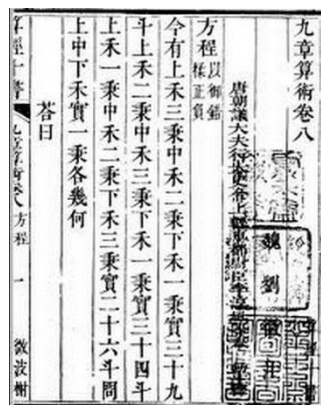 九章算術卷八
魏 劉 徽 注
唐朝議大夫行太史令上輕車都尉臣李淳風等
方程 以御錯糅正負
今有上禾三秉中禾二秉下禾一秉實三十九
斗上禾二秉中禾三秉下禾一秉實三十四斗
上禾一秉中禾二秉下禾三秉實二十六斗問
上中下禾實一秉各幾何
荅曰
算經十書 九章算術卷八 方程 一 微波榭